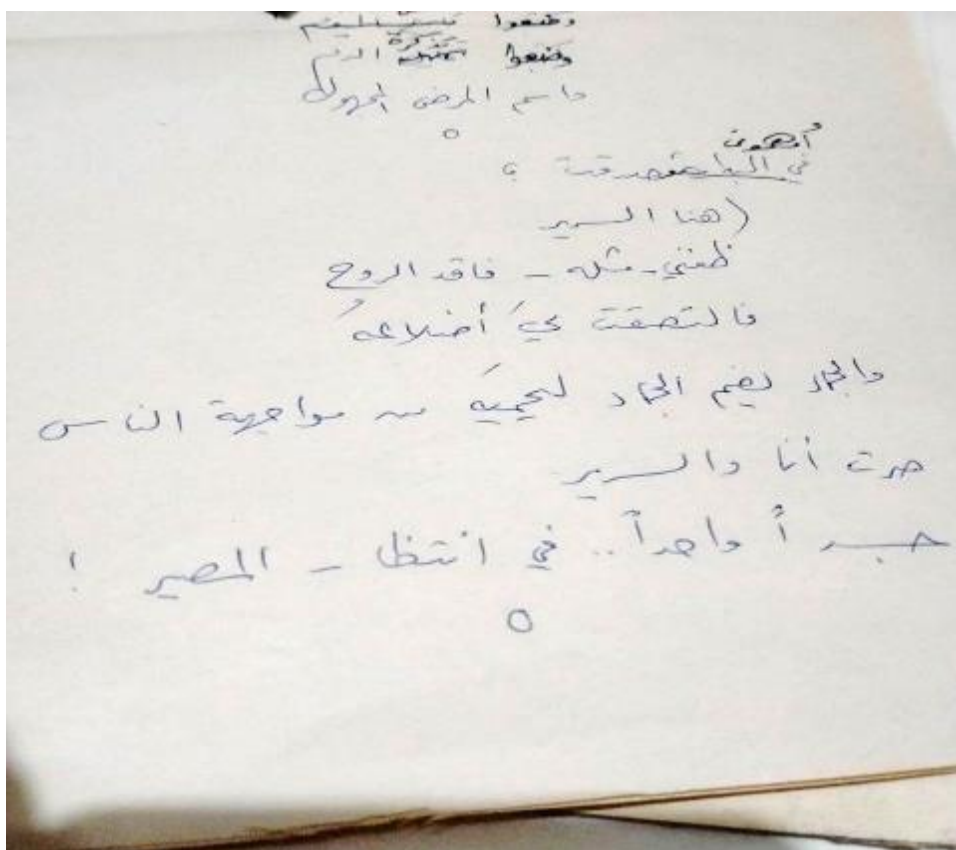 وضعوا
وضعوا تذكرة الدم
واسم المرض المجهول
أوهموني
فصدقت
(هذا السرير
ظنني - مثله - فاقد الروح
فالتصقت بيَ أضلاعهُ
والجماد يضم الجماد ليحميَه من مواجهة الناس
صرت أنا والسرير
جسداً واحداً.. في انتظار المصير !